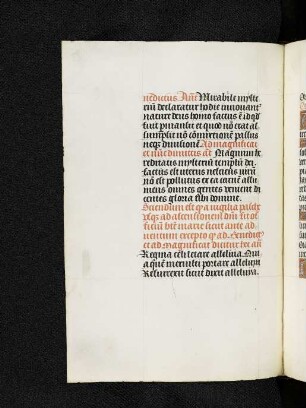 nedictus Añ Mirabile myste
riū declaratur hodie innouant͛
nature deus homo factus ē id qd
fuit pmansit et quod nō erat as
sumpsit nō cōmixtionē passus
neqꝫ diuisionē Ad magnificat
et nūc dimittis añ Magnum he
reditatis mysteriū templū dei
factus est uterus nesciens uirū
nō est pollutus ex ea carnē assu
mens omnes gentes venient di
centes gloria tibi domine
Sciendum est q a vigilia
usqꝫ ad ascensionem dñi sit offi
cium bte marie sicut ante ad
uentum excepto q ad Benedict͛
et ad Magnificat dicitur hec añ
Regina celi letare alleluia Qui
a quē meruisti portare alleluya
Resurrexit sicut dixit alleluia.